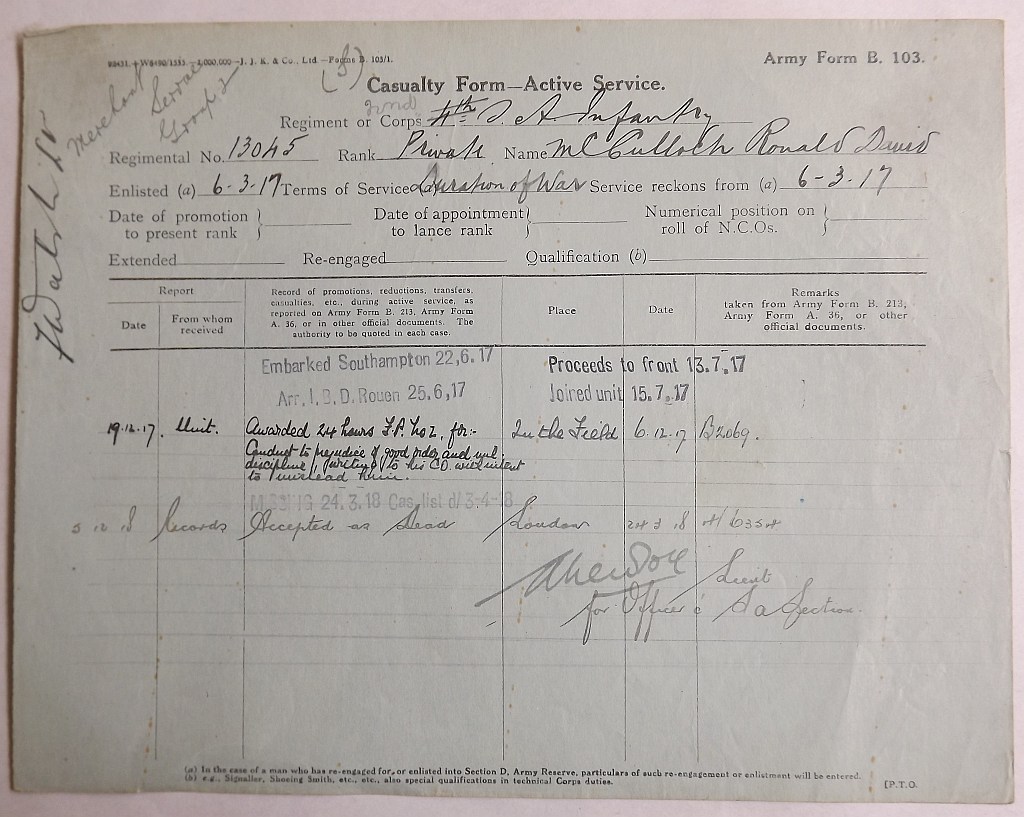 W8431. + W6480/1535. 4,000,000 J. J. K. & Co., Ltd. Forms B. 103/1.
Army Form B. 103.
(S)
Merchant
Service
Group 2
Casualty Form—Active Service.
2nd
Regiment or Corps 4th S. A. Infantry
Regimental No. 13045 Rank Private Name McCulloch Ronald David
Enlisted (a) 6-3-17 Terms of Service Duration of War Service reckons from (a) 6-3-17
Date of promotion to present rank } Date of appointment to lance rank } Numerical position on roll of N.C.Os. }
Extended Re-engaged Qualification (b)
Report
Date
From whom received
Record of promotions, reductions, transfers,
casualties, etc., during active service, as
reported on Army Form B. 213, Army Form
A. 36, or in other official documents. The
authority to be quoted in each case.
Place
Date
Remarks
taken from Army Form B. 213,
Army Form A. 36, or other
official documents.
Embarked Southampton 22,6.17 Proceeds to front 13.7.17
Arr. I.B.D. Rouen 25.6,17 Joined unit 15.7.17
19.12.17. Unit. Awarded 24 hours F.P. No 2, for:- In the Field 6.12.17 B2069.
Conduct to prejudice of good order and mil:
discipline, writing to his C.O. with intent
to mislead him.
MISSING 24.3.18 Cas. list d/3-4-8
5 12 18 Records Accepted as Dead London 24 3 18
Lieut
for Officer i/c S a Section.
(a) In the case of a man who has re-engaged for, or enlisted into Section D, Army Reserve, particulars of such re-engagement or enlistment will be entered.
(b) e.g., Signaller, Shoeing Smith, etc., etc., also special qualifications in technical Corps duties.
[P.T.O.